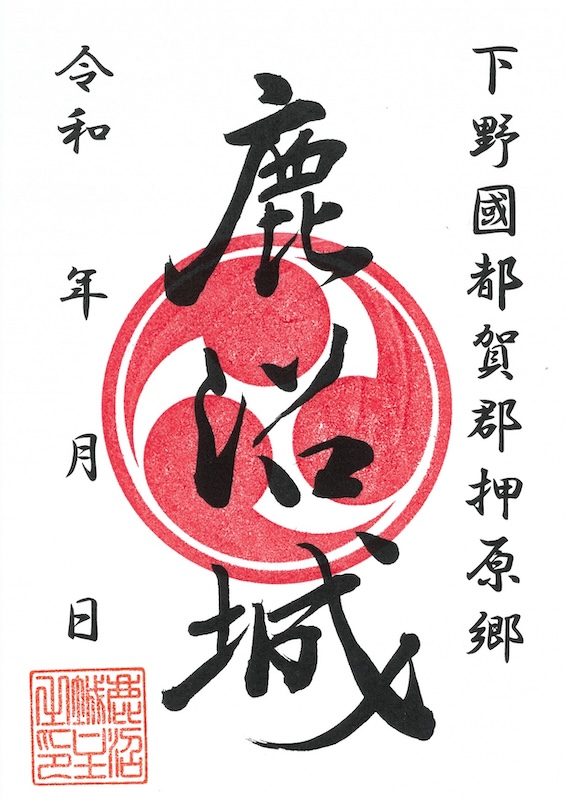 下野國都賀郡押原郷
鹿沼城
令和 年 月 日
鹿沼
城主
之印